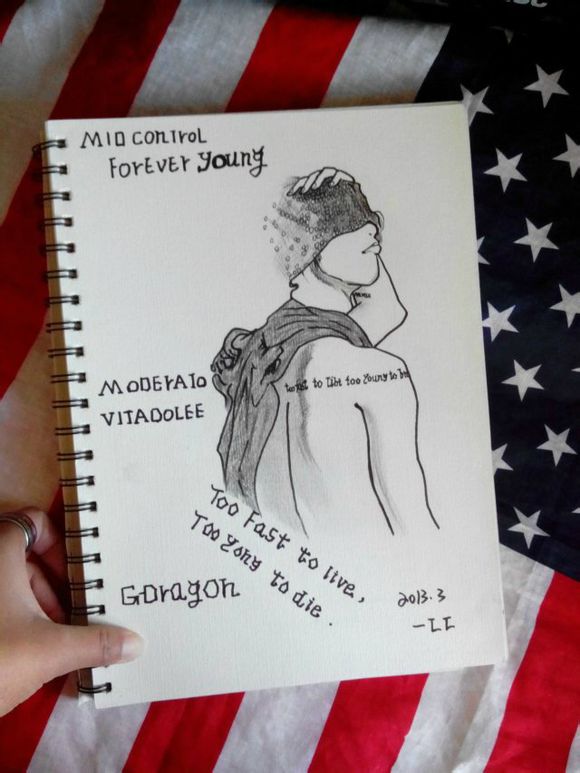 MID ConTrol
ForEvEr young
too fast to live too Young to
MoDEraTo
VITADOLEE
Too Fast to live,
Too yong to die.
GDragon
2013.3
-LI